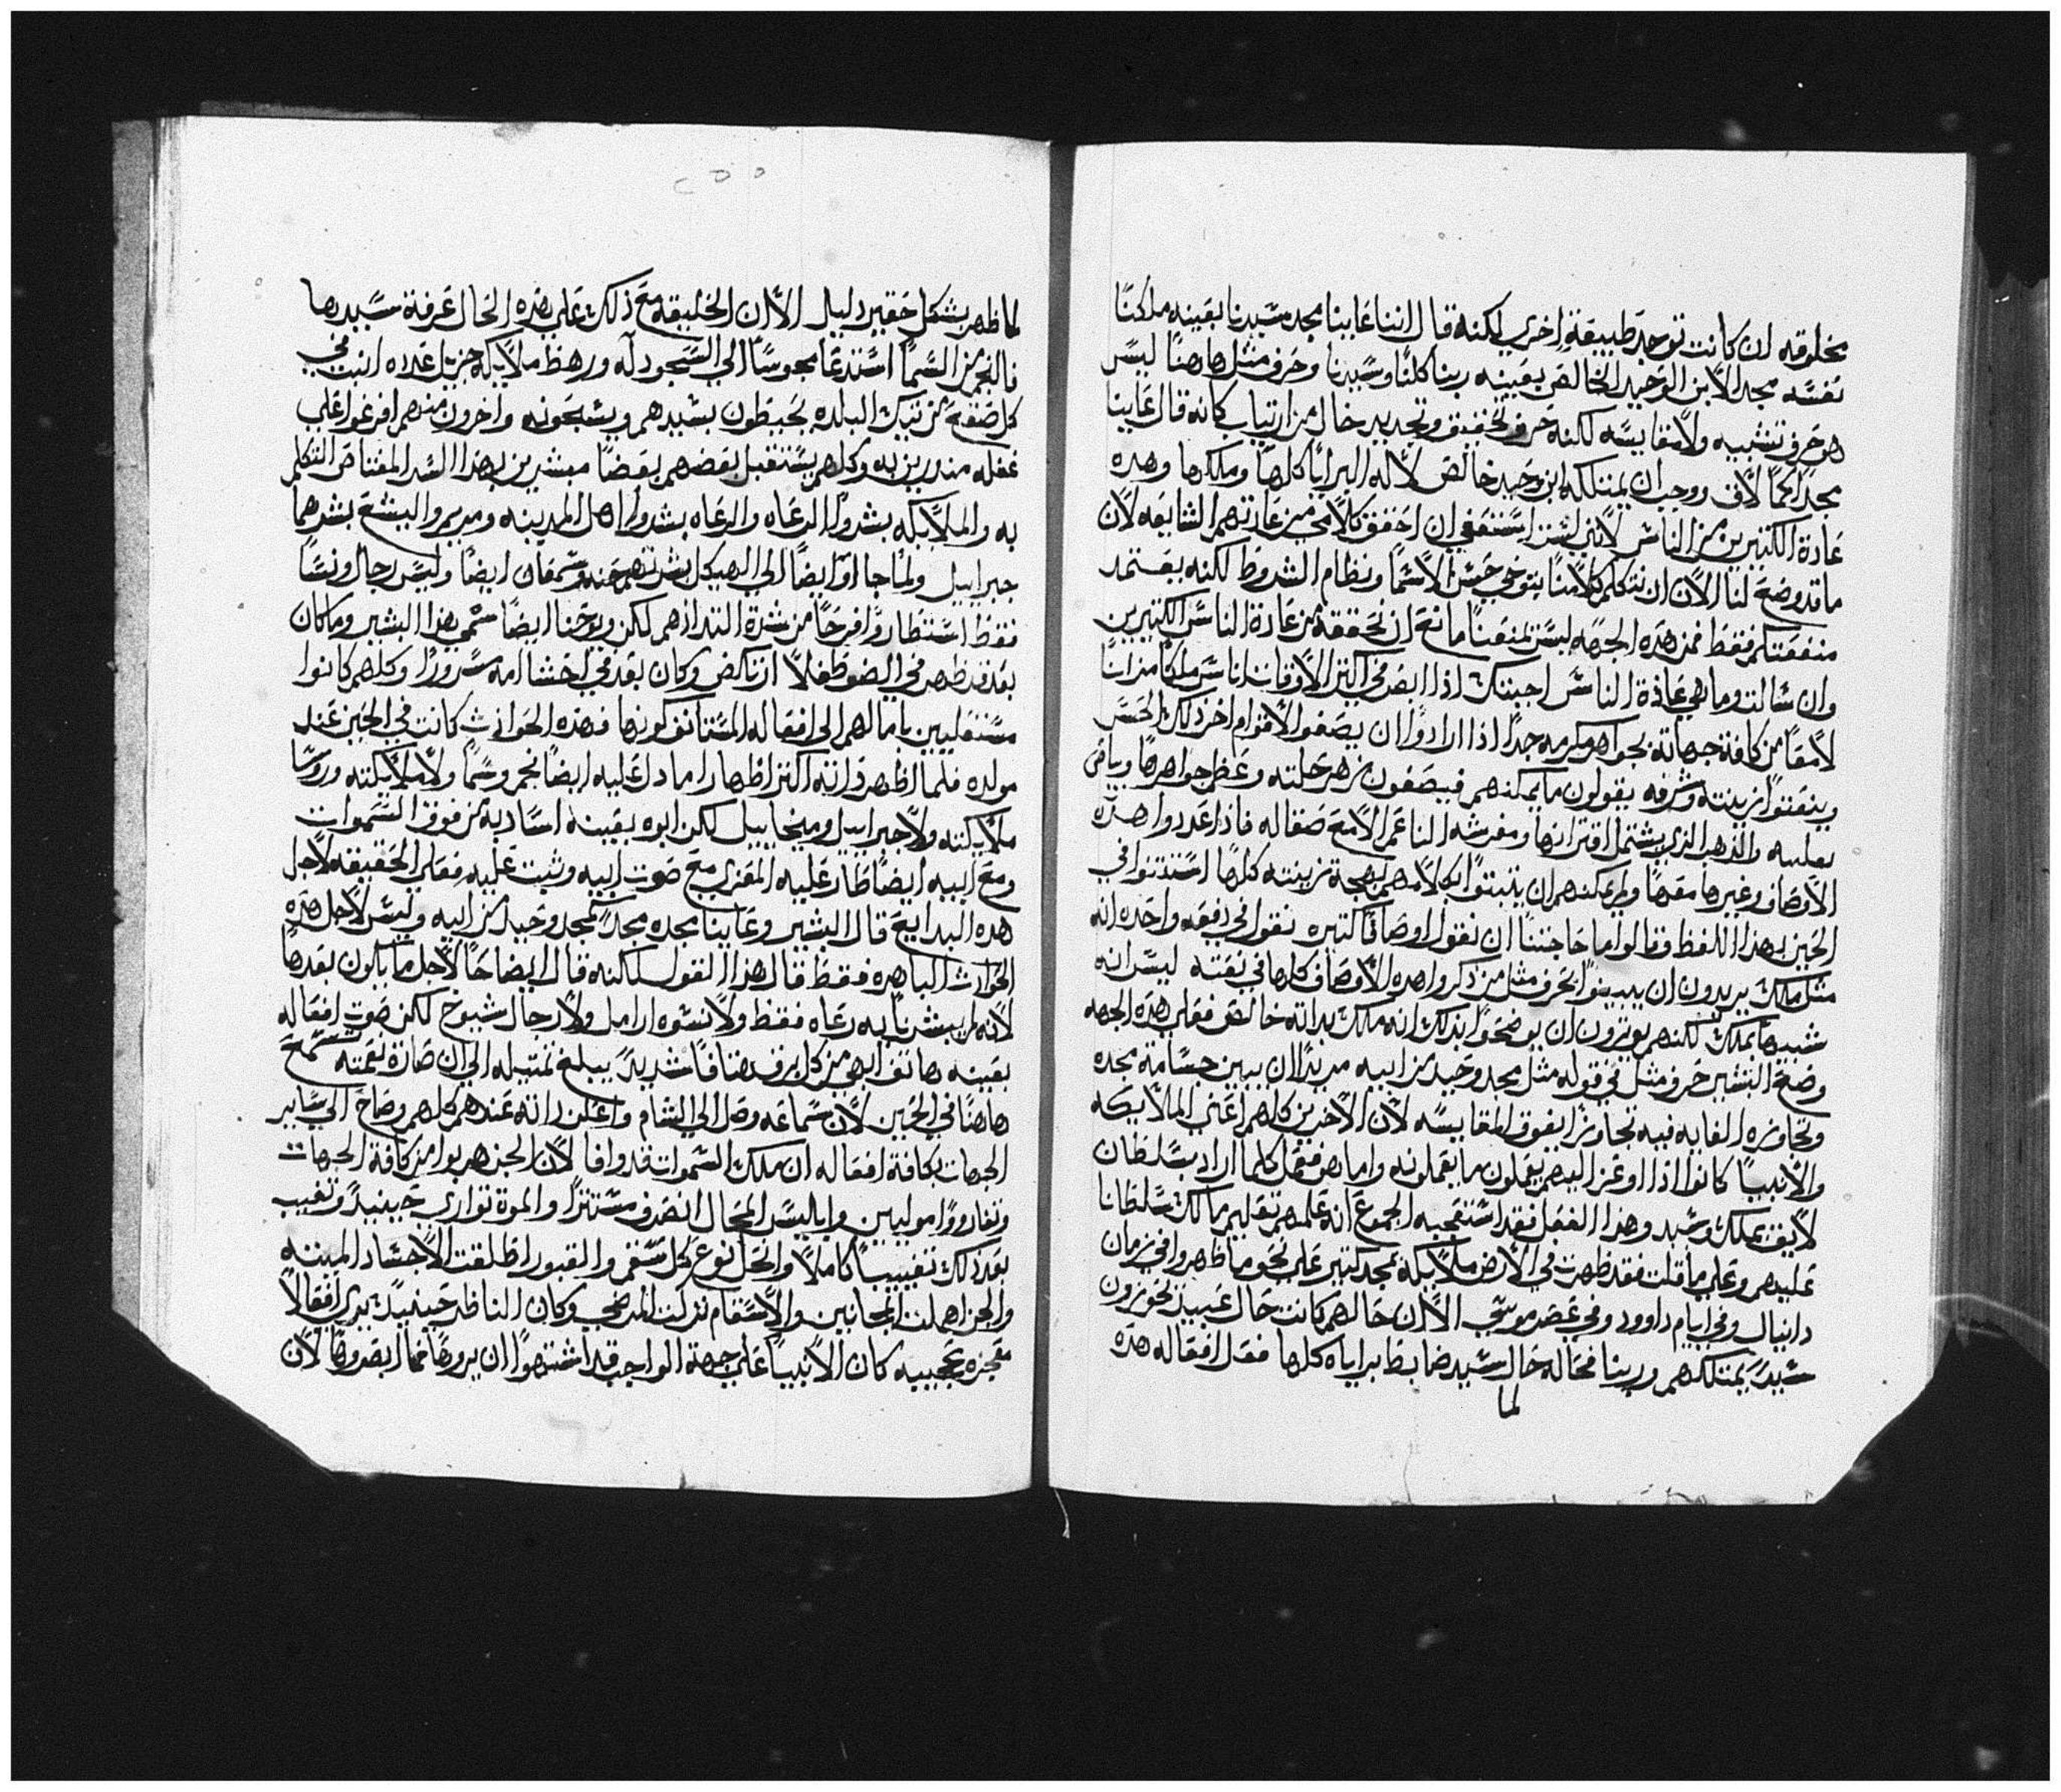 مخلوقه ان كانت توجد طبيعة اخري لكنه قال اننا عاينا مجد سيدنا بعينه ملكنا
نفسه مجد الابن الوحيد الخالص بعينه ربنا كلنا وسيدنا وحرف مثل هاهنا ليس
هو حرف تشبيه ولا مقايسه لكنه حرف تحقيق وتحديد خال من ارتياب كانه قال عاينا
مجدا كما لاق ووجب ان يمتلكه ابن وحيد خالص لاله البرايا كلها وملكها وهده
عادة الكتيرين من الناس لانني لست استعفي ان احقق كلامي من عادتهم الشايعه لان
ما قد وضع لنا الان ان نتكلم كلامنا بتوخي حسن الاسما ونظام الشروط لكنه بعتمد
منفعتكم فقط فمن هده الجهه ليس يمنعنا مانع ان نحققه من عادة الناس الكتيرين
وان سالت وما هي عادة الناس اجبتك اذا ابصر في اكتر الاوقات اناس ملكا مزانا
لامعا من كافة جهاته بجواهر مكرمه جدا اذا ارادوا ان يصفوا لاقوام اخر ذلك الحسن
وينعتوا زينته وشرفه يقولون ما يمكنهم فيصفون زهر حلته وعظم جواهرها وبياض
بغليه والذهب الذي يشتمل اقترانها ومفرشه الناعم الامع صقاله فاذا عددوا هذه
الاوصاف وغيرها معها ولم يمكنهم ان يتبتوا بكلامهم بهجة زينته كلها استدنوا في
الحين بهذا اللفظ وقالوا ما حاجتنا ان نقول اوصافا كتيره نقول في دفعه واحده انه
مثل ملك يريدون ان يبينوا بحرف مثل من ذكروا هده الاوصاف كلها في نعته ليس انه
شبيها بملك لكنهم يوترون ان يوضحوا بذلك انه ملك بداته خالص فعلي هده الجهه
وضع البشير حرف مثل في قوله مثل مجد وحيد من ابيه مريدا ان يبين جسامة مجده
وتجاوزه الغايه فيه تجاوزا يفوق المقايسه لان الاخرين كلهم اعني الملايكه
والانبيا كانوا اذا اوعز اليهم يعملون ما يعملونه واما هو فعمل كلما اراد بسلطان
لايق بملك وسيد وهذا الفعل فقد استعجبه الجموع انه علمهم تعليم مالك سلطانا
عليهم وعلي ما قلت فقد ظهرت في الارض ملايكه بمجد كتير علي نحو ما ظهروا في زمان
دانيال وفي ايام داوود وفي عصر موسي الا ان حالهم كانت حال عبيد يحوزون
سيدا يمتلكهم وربنا فحاله حال سيد ضابط براياه كلها فعل افعاله هده
لما
٢٥٥
لما ظهر بشكل حقير دليل الا ان الخليقه مع ذلك علي هده الحال عرفة سيدها
فالنجم من السما استدعا مجوسا الي السجود له ورهط ملايكه جزيل عدده انبت في
كل صقع من تيك البلده يحيطون بسيدهم ويسبحونه واخرون منهم افرغوا علي
غفله منذرين به وكلهم يستقبل بعضهم بعضا مبشرين بهذا السر المعتاص التكلم
به والملايكه بشروا الرعاه والرعاه بشروا اهل المدينه ومريم واليشبع بشرهما
جبراييل ولما جاوا ايضا الي الهيكل بشرتهم حنه وسمعان ايضا وليس رجال ونسا
فقط استطاروا فرحا من شدة التدادهم لكن ويوحنا ايضا سمي هذا البشير وما كان
بعد قد ظهر في الضو طفلا ارتكض وكان بعد في احشا امه سرورا وكلهم كانوا
مستعليين بامالهم الي افعاله المستانف كونها فهذه الحوادث كانت في الحين عند
مولده فلما اظهر ذاته اكتر اظهارا ما دل عليه ايضا نجم وسما ولا ملايكته وروسا
ملايكته ولا جبراييل وميخاييل لكن ابوه بعينه اشاد به من فوق السموات
ومع ابيه ايضا طار عليه المعزي مع صوت ابيه وثبت عليه فعلي الحقيقه لاجل
هده البدايع قال البشير وعاينا مجده مجدا كمجد وحيد من ابيه وليس لاجل هذه
الحوادث الباهره فقط قال هذا القول لكنه قال ايضاحا لاجل ما يكون بعدها
لانه لم يبشرنا به رعاه فقط ولا نسوه ارامل ولا رجال شيوخ لكن صوت افعاله
بعينه هاتف ابهي من كل برف هتافا شديدا يبلغ تمتيله الي ان صارة نغمته تستمع
هاهنا في الحين لان سماعه وصل الي الشام واعلن ذاته عندهم كلهم وصاح الي ساير
الجهات بكافة افعاله ان ملك السموات قد وافا لان الجن هربوا من كافة الجهات
وتغاروا موليين وابليس المحال انصرف مستترا والموة تواري حينيد وتغيب
بعد ذلك تغييبا كاملا وانحل نوع كل سقم والقبور اطلقت الاجساد الميته
والجن اهملت المجانين والاسقام تركت المرضي وكان الناظر حينيد يري افعالا
معجزه عجيبه كان الانبيا علي جهة الواجب قد اشتهوا ان يروها فما ابصروها لان